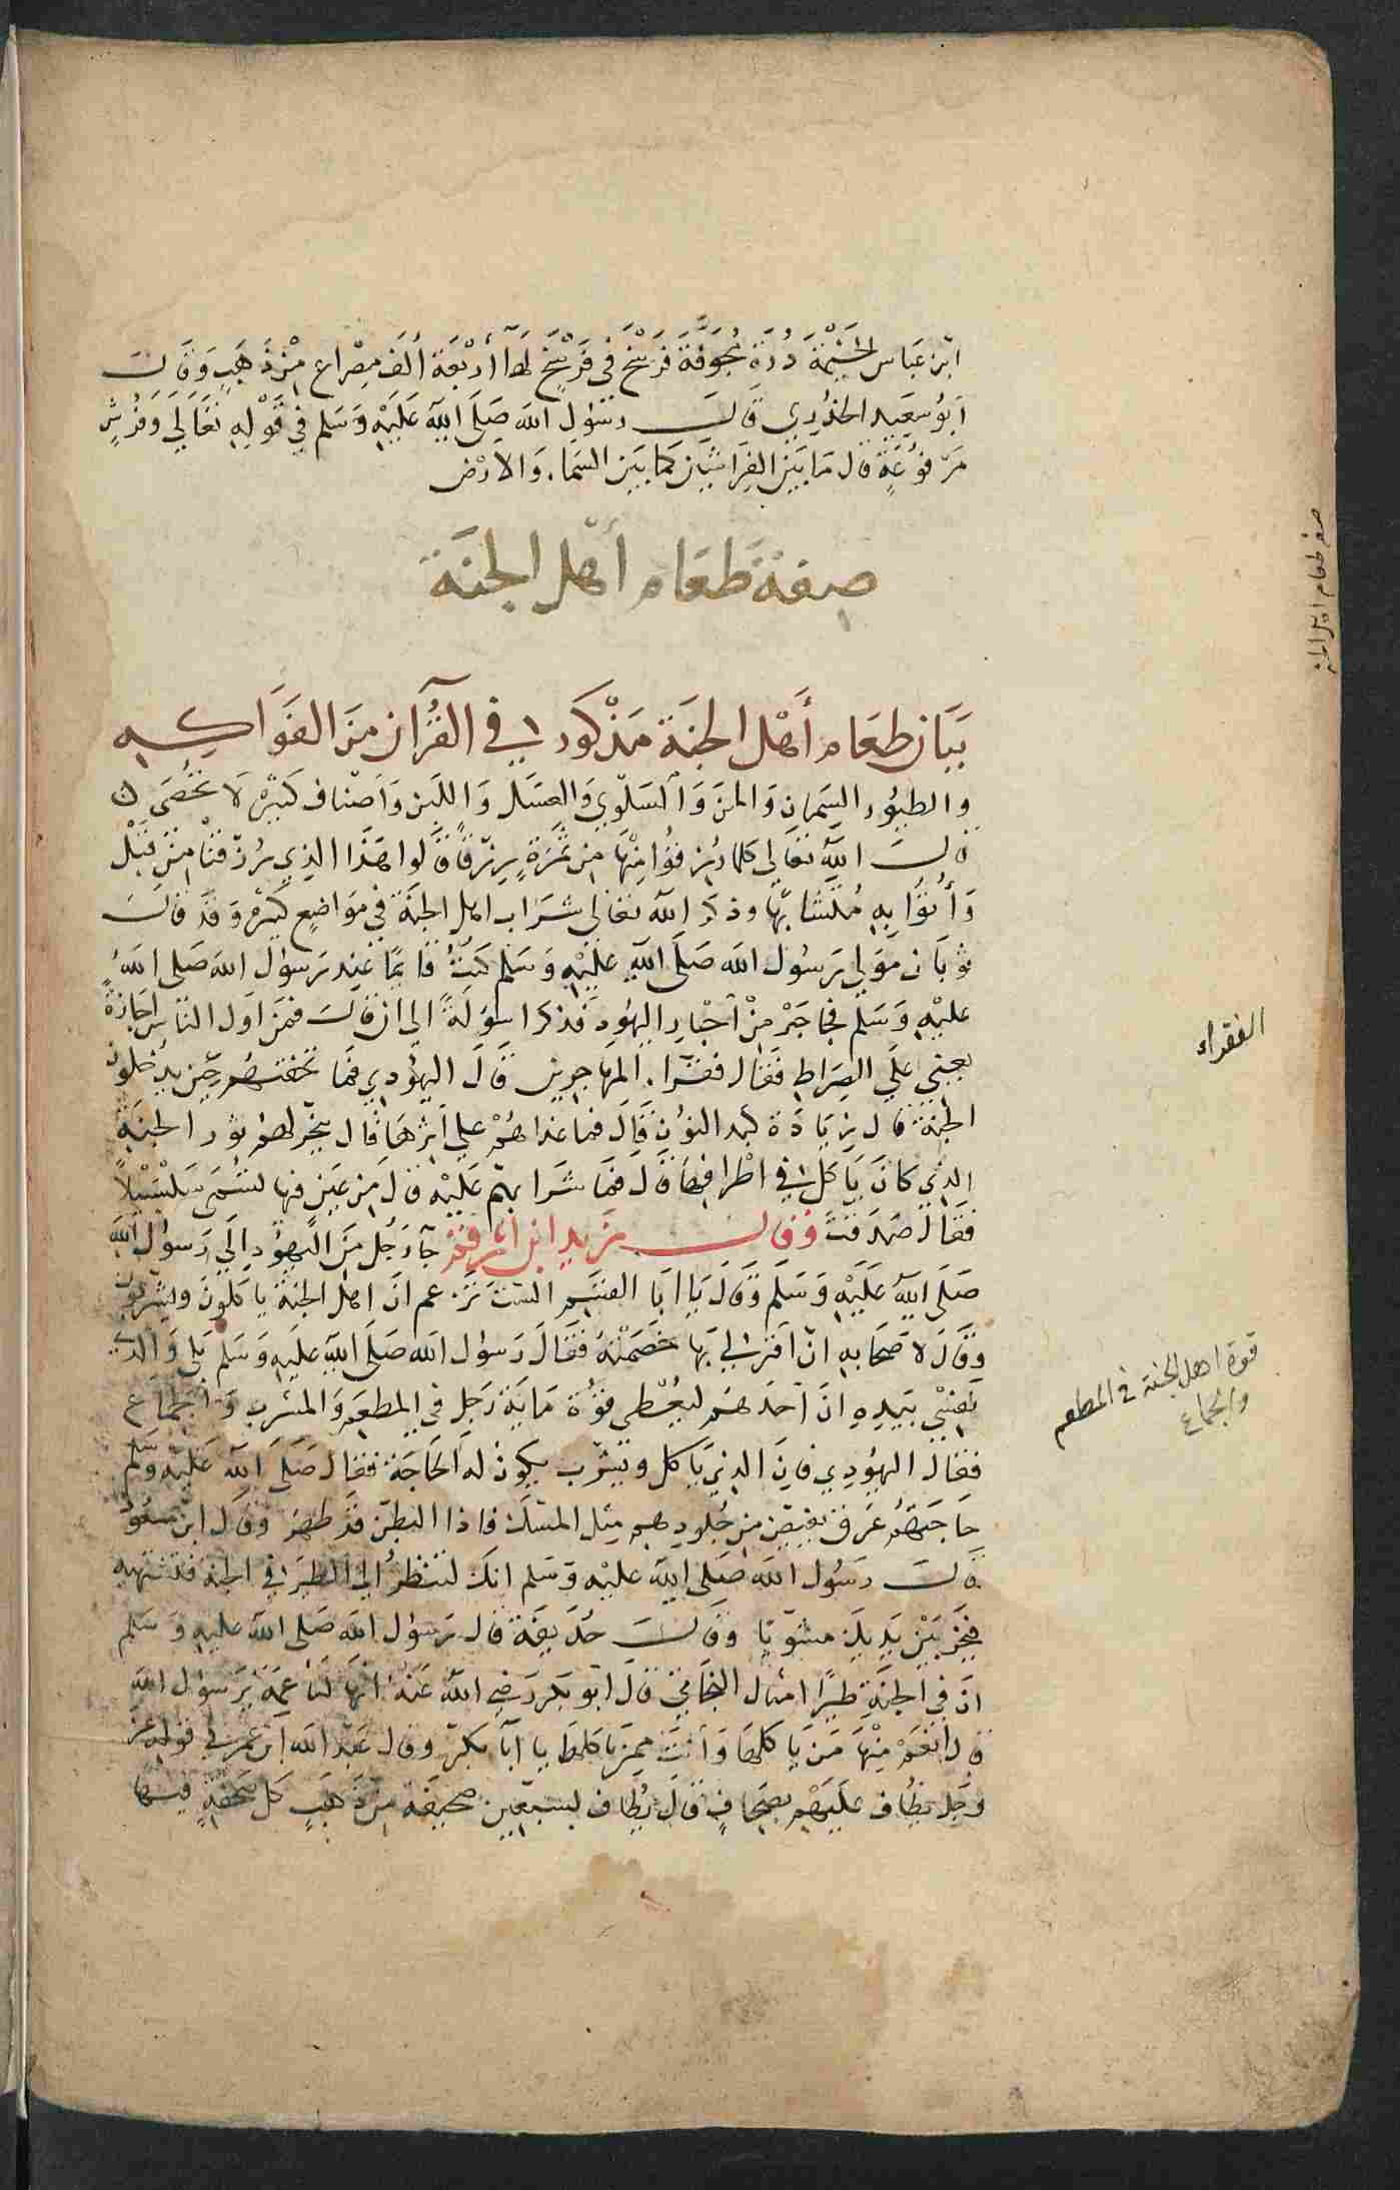 ابْن عَباس الخَيْمَة دُرَّة مُجَوَّفَة فَرْسَخ في فَرْسَخ لَهَا أَرْبَعَة ألف مِصْراع مِنْ ذَهَبٍ وَقَالَ
أبُو سَعِيد الخدْرِي قالَ رسُول الله صَلَى اللهُ عَلَيْهِ وَسَلم في قَوْلِهِ تَعَالَى وَفُرُشٍ
مَرْفُوعَةٍ قال مَا بَيْنَ الفِرَاشَيْنِ كَمَا بَيْنَ السَمَاء وَالأرْض
صِفَةَ طَعَام أَهْل الجَنَة
بَيَان طعَام أَهْل الجَنَة مَذْكُور في القُرْآن مِنَ الفَوَاكِه
والطيُور السِمَانِ وَالمن وَالسَلْوَي وَالعَسَل وَاللَبن وَأصْناف كَثِيْرَة لَا تُحْصَى
قالَ اللهُ تعَالى كلمَا رُزِقُوا مِنْهَا مِن ثَمَرَةٍ رِزْقًا قَالوا هَذَا الذِي رُزِقْنَا مِنْ قَبْل
وَأُتُوا بِهِ مُتَشَابِهًا وذكرَ الله تعَالى شَرَاب اهل الجَنَة في مَوَاضِع كثِيرَة وَقَد قالَ
ثوبَان مَوْلى رَسُول الله صَلَى اللهُ عَلَيْهِ وَسَلم كنتُ قائِمًا عِند رَسوُل الله صَلى اللهُ
عليْهِ وَسَلم فجا حَبْر مِنْ أحْبَار اليهُودِ فَذكرَ اسْوِلَةً الى ان قَالَ فمَن أول الناسِ اجَازَةً
يعني علَى الصِرَاط فقَال فقَرَاء المهَاجِرين قَالَ اليهُودِي فمَا تحفتهُم حِيْن يَدْخلونَ
الجَنَة قال زِيَادَة كبد النوُن قَالَ فما غذَاهُمْ علَى أثرِهَا قال يُنحر لهُم ثور الجنَة
الذِي كانَ يَاكل في اطْرافِهَا قَالَ فمَا شَرَابهُم عَلَيْه قَالَ مِن عَيْنٍ فيها تسَمَى سَلْسَبِيْلاً
فقَالَ صَدَقتَ وقَال زيد ابن ارقم جآ رَجُل مِنَ اليَهوُدِ الَى رَسوُل الله
صَلَى اللهُ عَلَيْهِ وَسَلم وَقَالَ يَا ابَا القسَم الَسْتَ تَزعم انَ اهل الجَنة يَاكلونَ ويشْرَبون
وَقَالَ لاصْحَابه ان أقرَّ لي بهَا خَصَمْتهُ فقَالَ رَسوُل الله صَلَى اللهُ عَليهِ وَسَلم بَلى وَالذي
نَفْسِي بِيَدِهِ انَ أحَدَهُم ليُعْطى قوُة مَايَة رَجل في المطعَم وَالمشرَب وَالجمَاع
فقَال اليَهوُدِي فانَ الذي يَاكل ويَشْرَب يكون لهُ الحَاجَة فقَال صَلَى اللهُ عَلَيْه وَسَلم
حَاجَتهُم عَرَق يَفِيض مِن جُلودِهِم مِثل المسْك فاذا البَطن قَد ضَمر وَقَال ابن مَسْعُود
قالَ رَسُول الله صَلَى اللهُ عَليْه وَسَلم انكَ لتَنظُرُ الى الطيَر في الجنة فتَشْتهيه
فيَخِرُ بَيْن يَدَيكَ مشويّا وقَالَ حُذَيفَة قال رَسوُل الله صَلى اللهُ عليهِ وَسَلم
انَ في الجَنَةِ طيرًا امثال البخَاتي قَالَ ابو بَكر رَضِي اللهُ عَنهُ انهَا لنَاعِمَة يَرَسُول الله
قال أنعَم مِنْهَا مَن يَاكلهَا وَأنتَ مِمَن يَاكلهَا يا أبَا بَكر وقَال عَبْد الله ابن عُمَر في قوله عَز
وَجَل يُطَاف عَلَيهِم بِصِحَافٍ قَالَ يُطَاف بسَبعِين صَحِيفَة مِن ذَهَب كل صَحفَةٍ فيها
صفة طعام اهل الجنة
الفقراء
قوة اهل الجنة في المطعم
والجماع